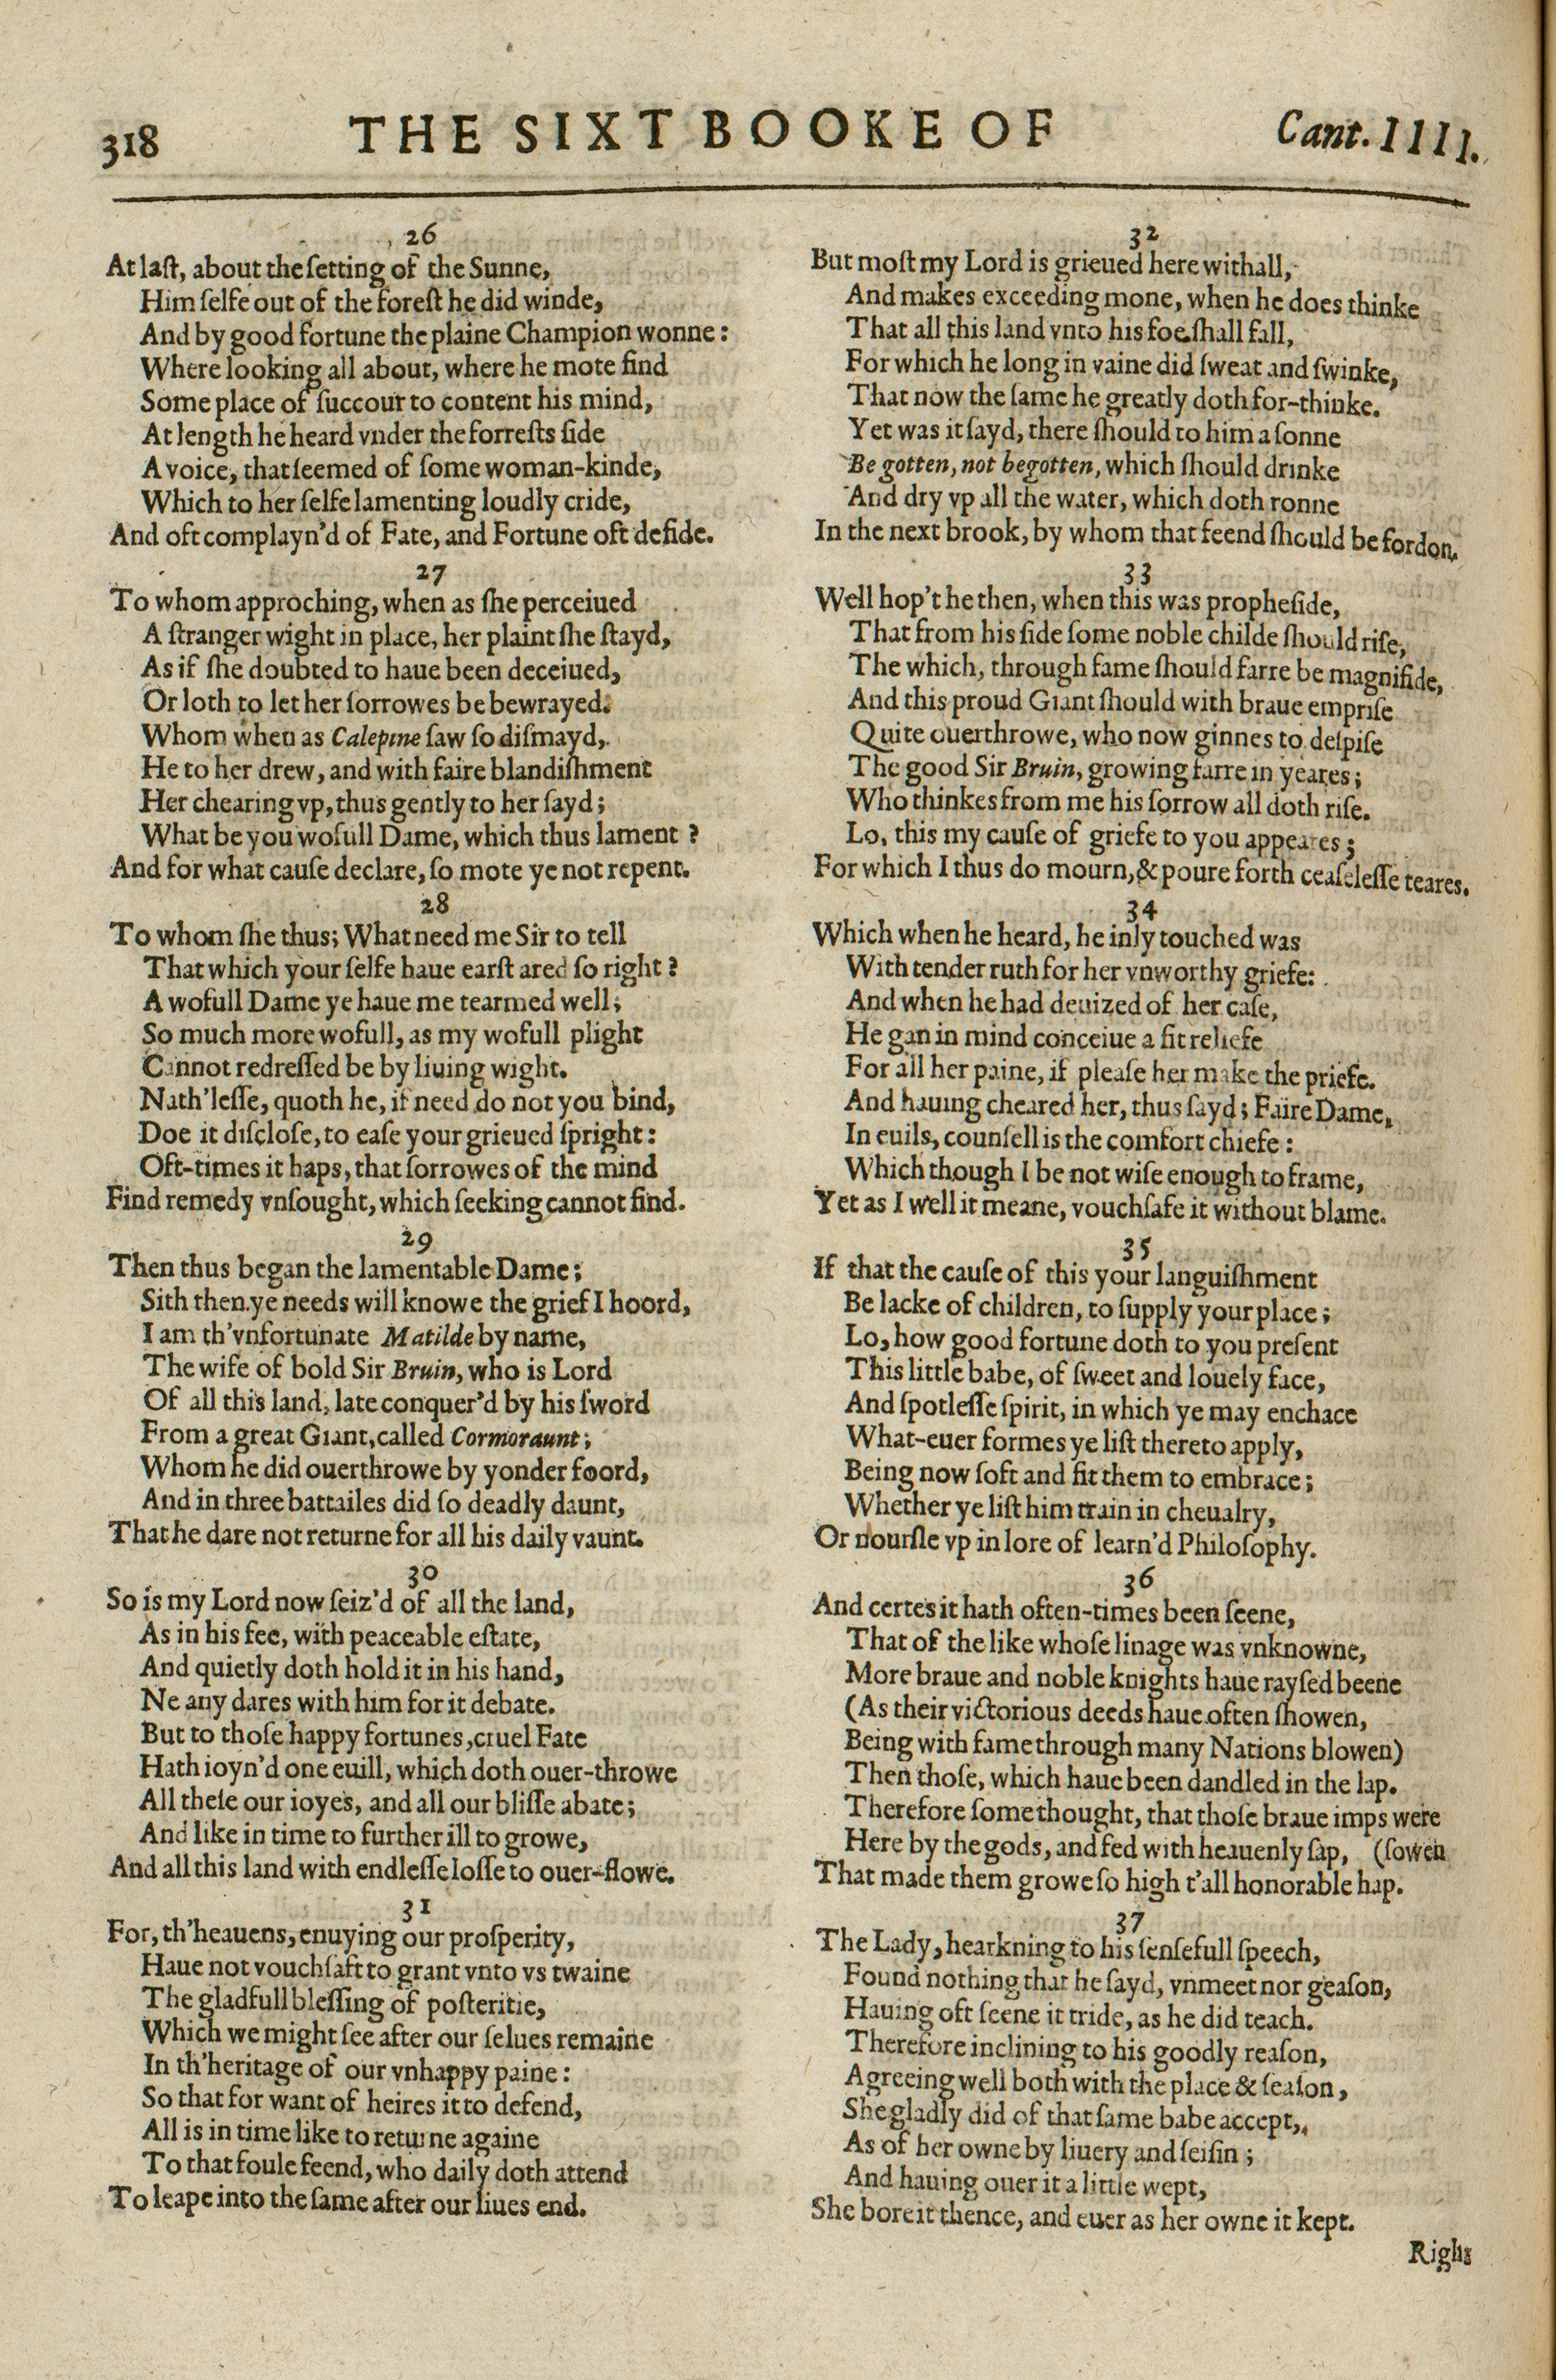 318 THE SIXT BOOKE OF Cant. IIII.
26
At laſt, about the ſetting of the Sunne,
Him ſelfe out of the foreſt he did winde,
And by good fortune the plaine Champion wonne:
Where looking all about, where he mote find
Some place of ſuccour to content his mind,
At length he heard vnder the forreſts ſide
A voice, that ſeemed of ſome woman-kinde,
Which to her ſelfe lamenting loudly cride,
And oft complayn'd of Fate, and Fortune oft defide.
27
To whom approching, when as ſhe perceiued
A ſtranger wight in place, her plaint ſhe ſtayd,
As if ſhe doubted to haue been deceiued,
Or loth to let her ſorrowes be bewrayed.
Whom when as Calepine ſaw ſo diſmayd,
He to her drew, and with faire blandiſhment
Her chearing vp, thus gently to her ſayd;
What be you wofull Dame, which thus lament?
And for what cauſe declare, ſo mote ye not repent.
28
To whom ſhe thus; What need me Sir to tell
That which your ſelfe haue earſt ared ſo right?
A wofull Dame ye haue me tearmed well;
So much more wofull, as my wofull plight
Cannot redreſſed be by liuing wight.
Nath'leſſe, quoth he, if need do not you bind,
Doe it diſcloſe, to eaſe your grieued ſpright:
Oft-times it haps, that ſorrowes of the mind
Find remedy vnſought, which ſeeking cannot find.
29
Then thus began the lamentable Dame;
Sith then ye needs will knowe the grief I hoord,
I am th'vnfortunate Matilde by name,
The wife of bold Sir Bruin, who is Lord
Of all this land, late conquer'd by his ſword
From a great Giant, called Cormoraunt;
Whom he did ouerthrowe by yonder foord,
And in three battailes did ſo deadly daunt,
That he dare not returne for all his daily vaunt.
30
So is my Lord now ſeiz'd of all the land,
As in his fee, with peaceable eſtate,
And quietly doth hold it in his hand,
Ne any dares with him for it debate.
But to thoſe happy fortunes, cruel Fate
Hath ioyn'd one euill, which doth ouer-throwe
All theſe our ioyes, and all our bliſſe abate;
And like in time to further ill to growe,
And all this land with endleſſe loſſe to ouer-flowe.
31
For, th'heauens, enuying our proſperity,
Haue not vouchſaft to grant vnto vs twaine
The gladfull bleſſing of poſteritie,
Which we might ſee after our ſelues remaine
In th'heritage of our vnhappy paine:
So that for want of heires it to defend,
All is in time like to returne againe
To that foule feend, who daily doth attend
To leape into the ſame after our liues end.
32
But moſt my Lord is grieued here withall,
And makes exceeding mone, when he does thinke
That all this land vnto his foe ſhall fall,
For which he long in vaine did ſweat and ſwinke,
That now the ſame he greatly doth for-thinke.
Yet was it ſayd, there ſhould to him a ſonne
Be gotten, not begotten, which ſhould drinke
And dry vp all the water, which doth ronne
In the next brook, by whom that feend ſhould be fordon.
33
Well hop't he then, when this was propheſide,
That from his ſide ſome noble childe ſhould riſe,
The which, through fame ſhould farre be magnifide,
And this proud Giant ſhould with braue empriſe
Quite ouerthrowe, who now ginnes to deſpiſe
The good Sir Bruin, growing farre in yeares;
Who thinkes from me his ſorrow all doth riſe.
Lo, this my cauſe of griefe to you appeares;
For which I thus do mourn, & poure forth ceaſeleſſe teares.
34
Which when he heard, he inly touched was
With tender ruth for her vnworthy griefe:
And when he had deuized of her caſe,
He gan in mind conceiue a fit reliefe
For all her paine, if pleaſe her make the priefe.
And hauing cheared her, thus ſayd; Faire Dame,
In euils, counſell is the comfort chiefe:
Which though I be not wiſe enough to frame,
Yet as I well it meane, vouchſafe it without blame.
35
If that the cauſe of this your languiſhment
Be lacke of children, to ſupply your place;
Lo, how good fortune doth to you preſent
This little babe, of ſweet and louely face,
And ſpotleſſe ſpirit, in which ye may enchace
What-euer formes ye liſt thereto apply,
Being now ſoft and fit them to embrace;
Whether ye liſt him train in cheualry,
Or nourſle vp in lore of learn'd Philoſophy.
36
And certes it hath often-times been ſeene,
That of the like whoſe linage was vnknowne,
More braue and noble knights haue rayſed beene
(As their victorious deeds haue often ſhowen,
Being with fame through many Nations blowen)
Then thoſe, which haue been dandled in the lap.
Therefore ſome thought, that thoſe braue imps were
Here by the gods, and fed with heauenly ſap, (ſowen
That made them growe ſo high t'all honorable hap.
37
The Lady, hearkning to his ſenſefull ſpeech,
Found nothing that he ſayd, vnmeet nor geaſon,
Hauing oft ſeene it tride, as he did teach.
Therefore inclining to his goodly reaſon,
Agreeing well both with the place & ſeaſon,
She gladly did of that ſame babe accept,
As of her owne by liuery and ſeiſin;
And hauing ouer it a little wept,
She bore it thence, and euer as her owne it kept.
Right